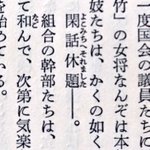 一度国会の議員たちに
竹”の女将なんぞは本
妓たちは、かくの如く
閑話休題――。
みちへそれました
組合の幹部たちは、
て和んで、次第に気楽
を始めている。